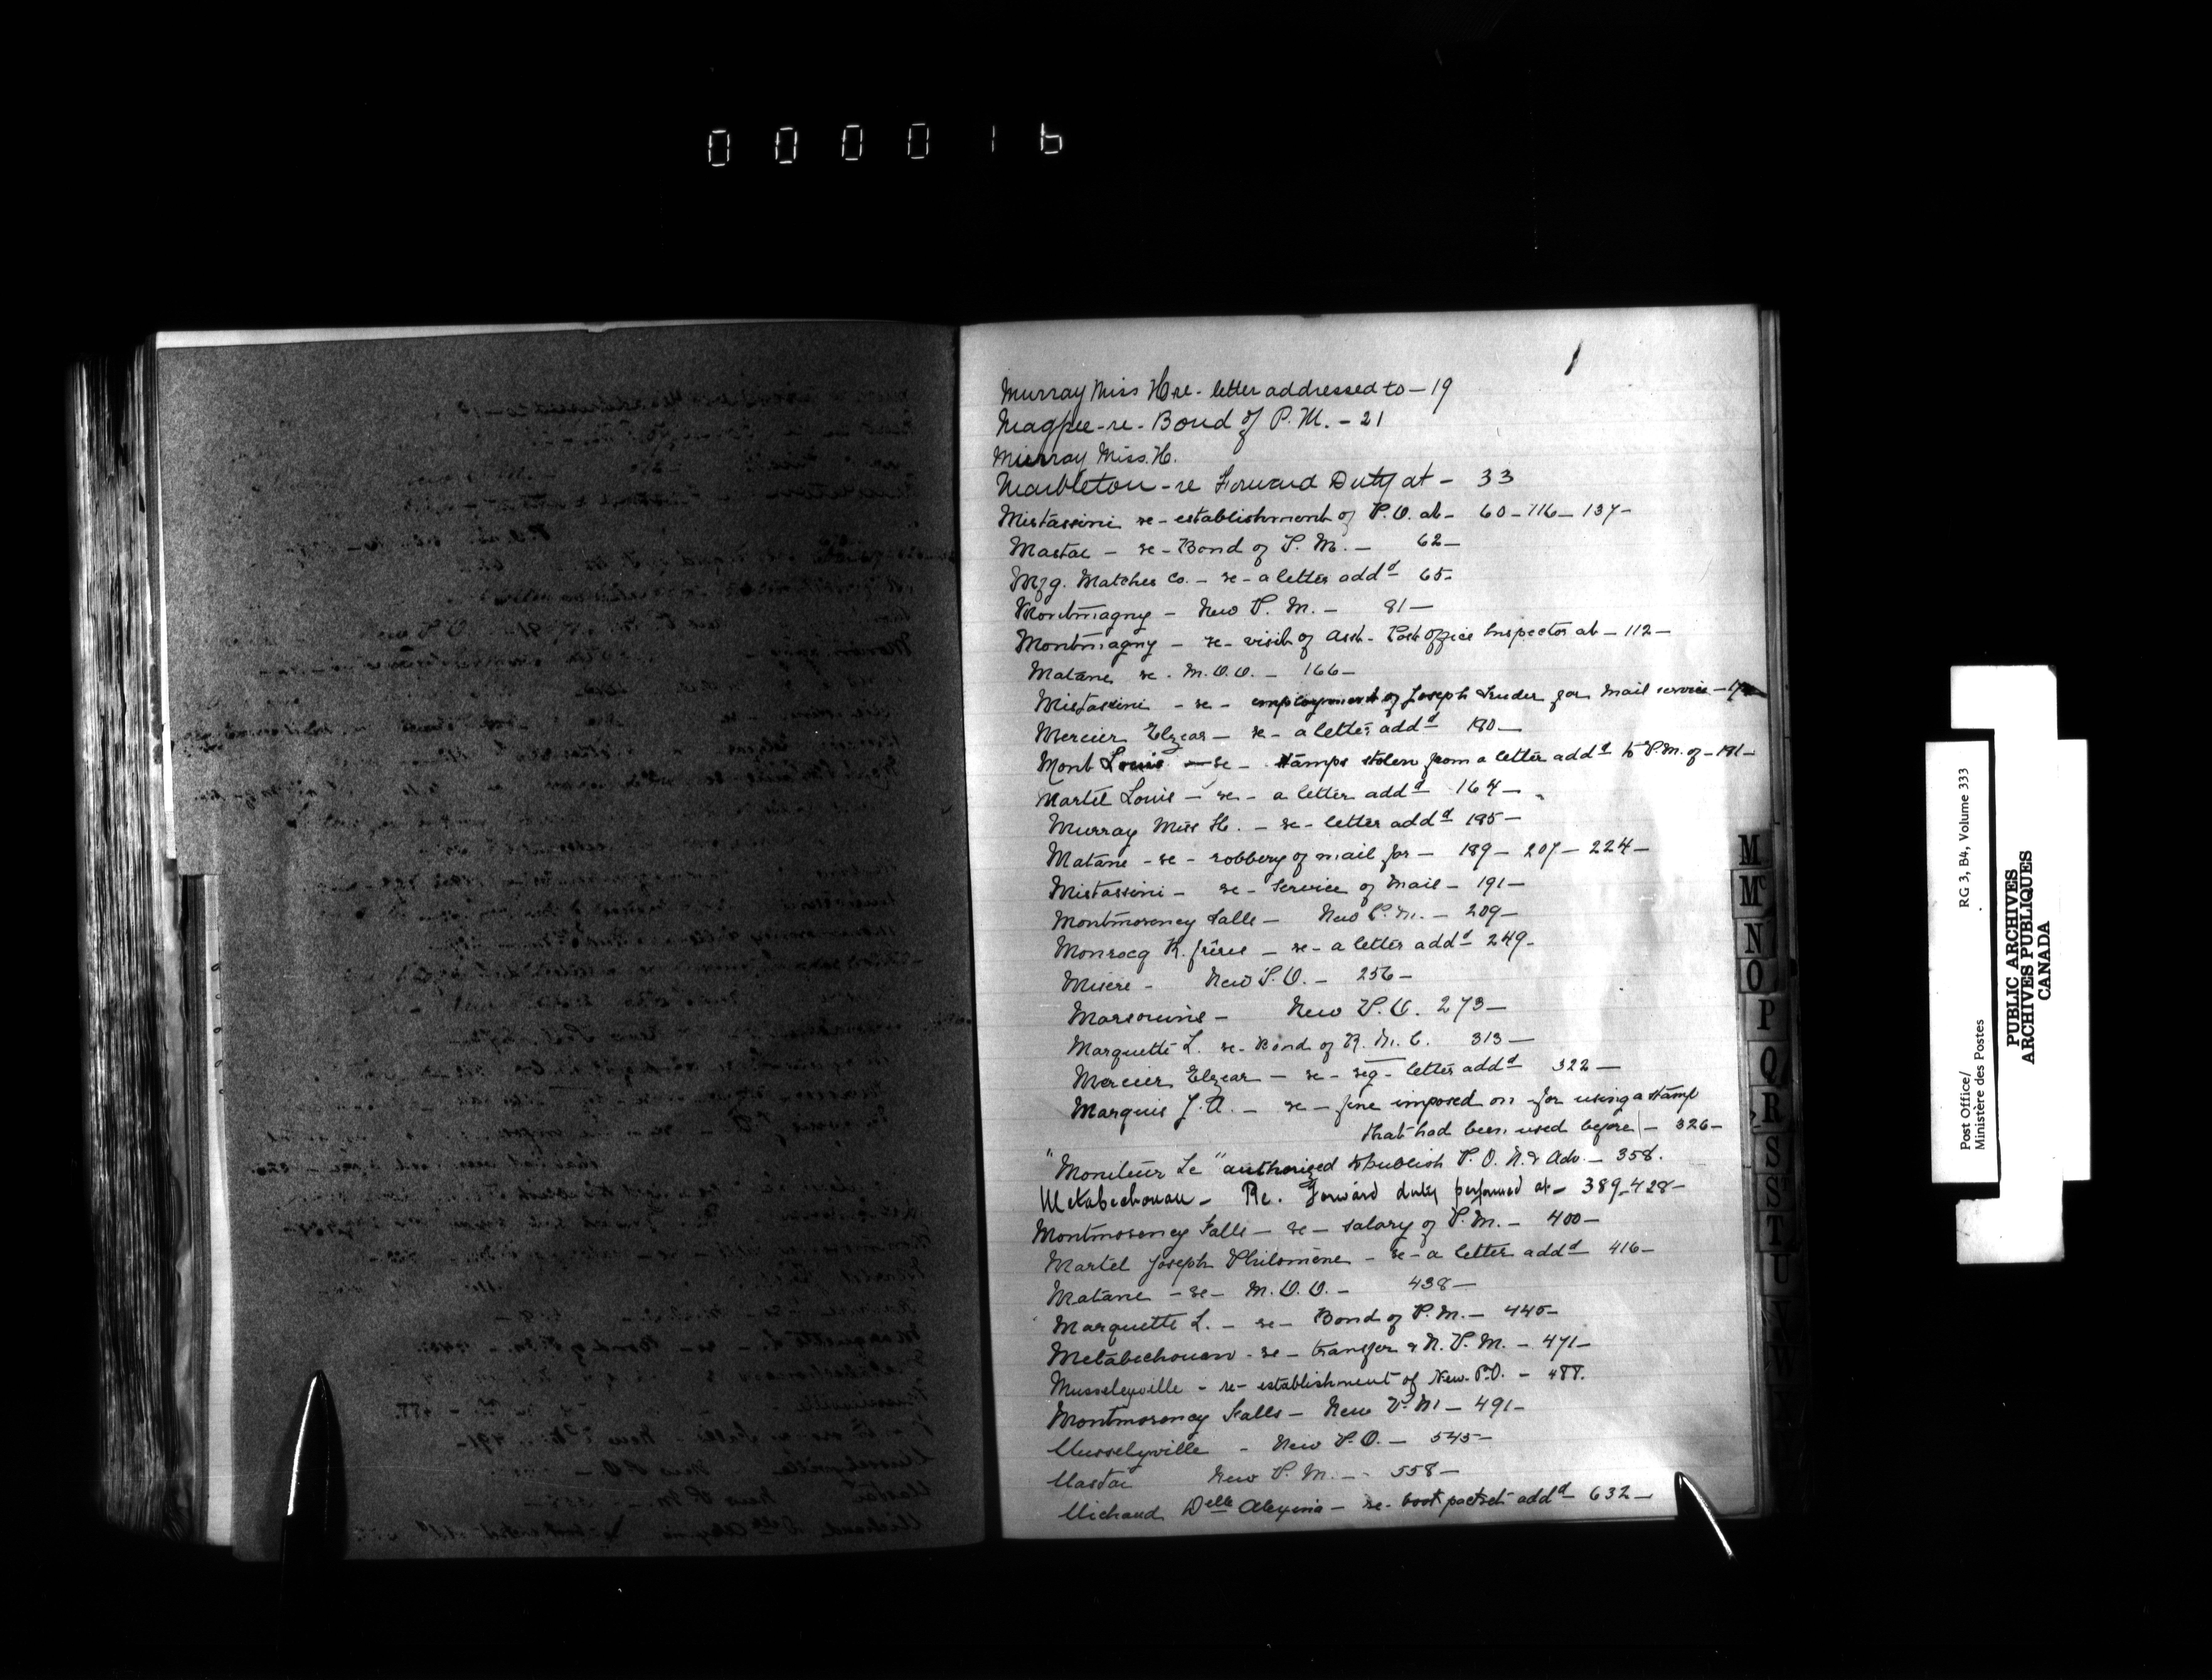 000016
1
Murray Miss H re - letter addressed to - 19
Magpie - re - Bond of P. M. - 21
Murray Miss. H.
Marbleton - re Forward Duty at - 33
Mistassini re - establishment of P. O. at - 60 - 116 - 137 -
Mastai - re - Bond of P. M. - 62 -
Mfg. Matches Co. - re - a letter addd 65 -
Montmagny - New P. M. - 81 -
Montmagny - re - visit of Asst. Post Office Inspector at - 112 -
Matane re - M. O. O. - 166 -
Mistassini - re - employment of Joseph for Mail service -
Mercier Elzear - re - a letter addd 180 -
Mont Louis - re - stamps stolen from a letter addd to P. M. of - 181 -
Martel Louis - re - a letter addd 164 -
Murray Miss H. - re - letter addd 185 -
Matane - re - robbery of mail for - 189 - 207 - 224 -
Mistassini - re - Service of Mail - 191 -
Montmorency Falls - New P. M. - 209 -
Monrocq R. frères - re - a letter addd 249 -
Misere - New P. O. - 256 -
Marsouins - New P. O. 273 -
Marquette L. re - Bond of R. M. C. 313 -
Mercier Elzear - re - reg - letter addd 322 -
Marquis J. A. - re - fine imposed on - for using a stamp
that had been used before - 326 -
"Moniteur Le" authorized to publish P. O. N. & Adv. - 358.
Metabechouan - Re. Forward duty performed at - 389 - 428 -
Montmorency Falls - re - salary of P. M. - 400 -
Martel Joseph Philomène - re - a letter addd 416 -
Matane - re - M. O. O. - 438 -
Marquette L. - re - Bond of P. M. - 445 -
Metabechouan - re - transfer & N. P. M. - 471 -
Musseleyville - re - establishment of New P. O. - 488.
Montmorency Falls - New P. M - 491 -
Musselyville - New P. O. - 545 -
Mastai New P. M. - 558 -
Michaud Delle Alexina - re - book packet addd 632 -
M
Mc
N
O
P
Q
R
S
St
T
U
V
W
Post Office/ RG 3, B4, Volume 333
Ministère des Postes
PUBLIC ARCHIVES
ARCHIVES PUBLIQUES
CANADA